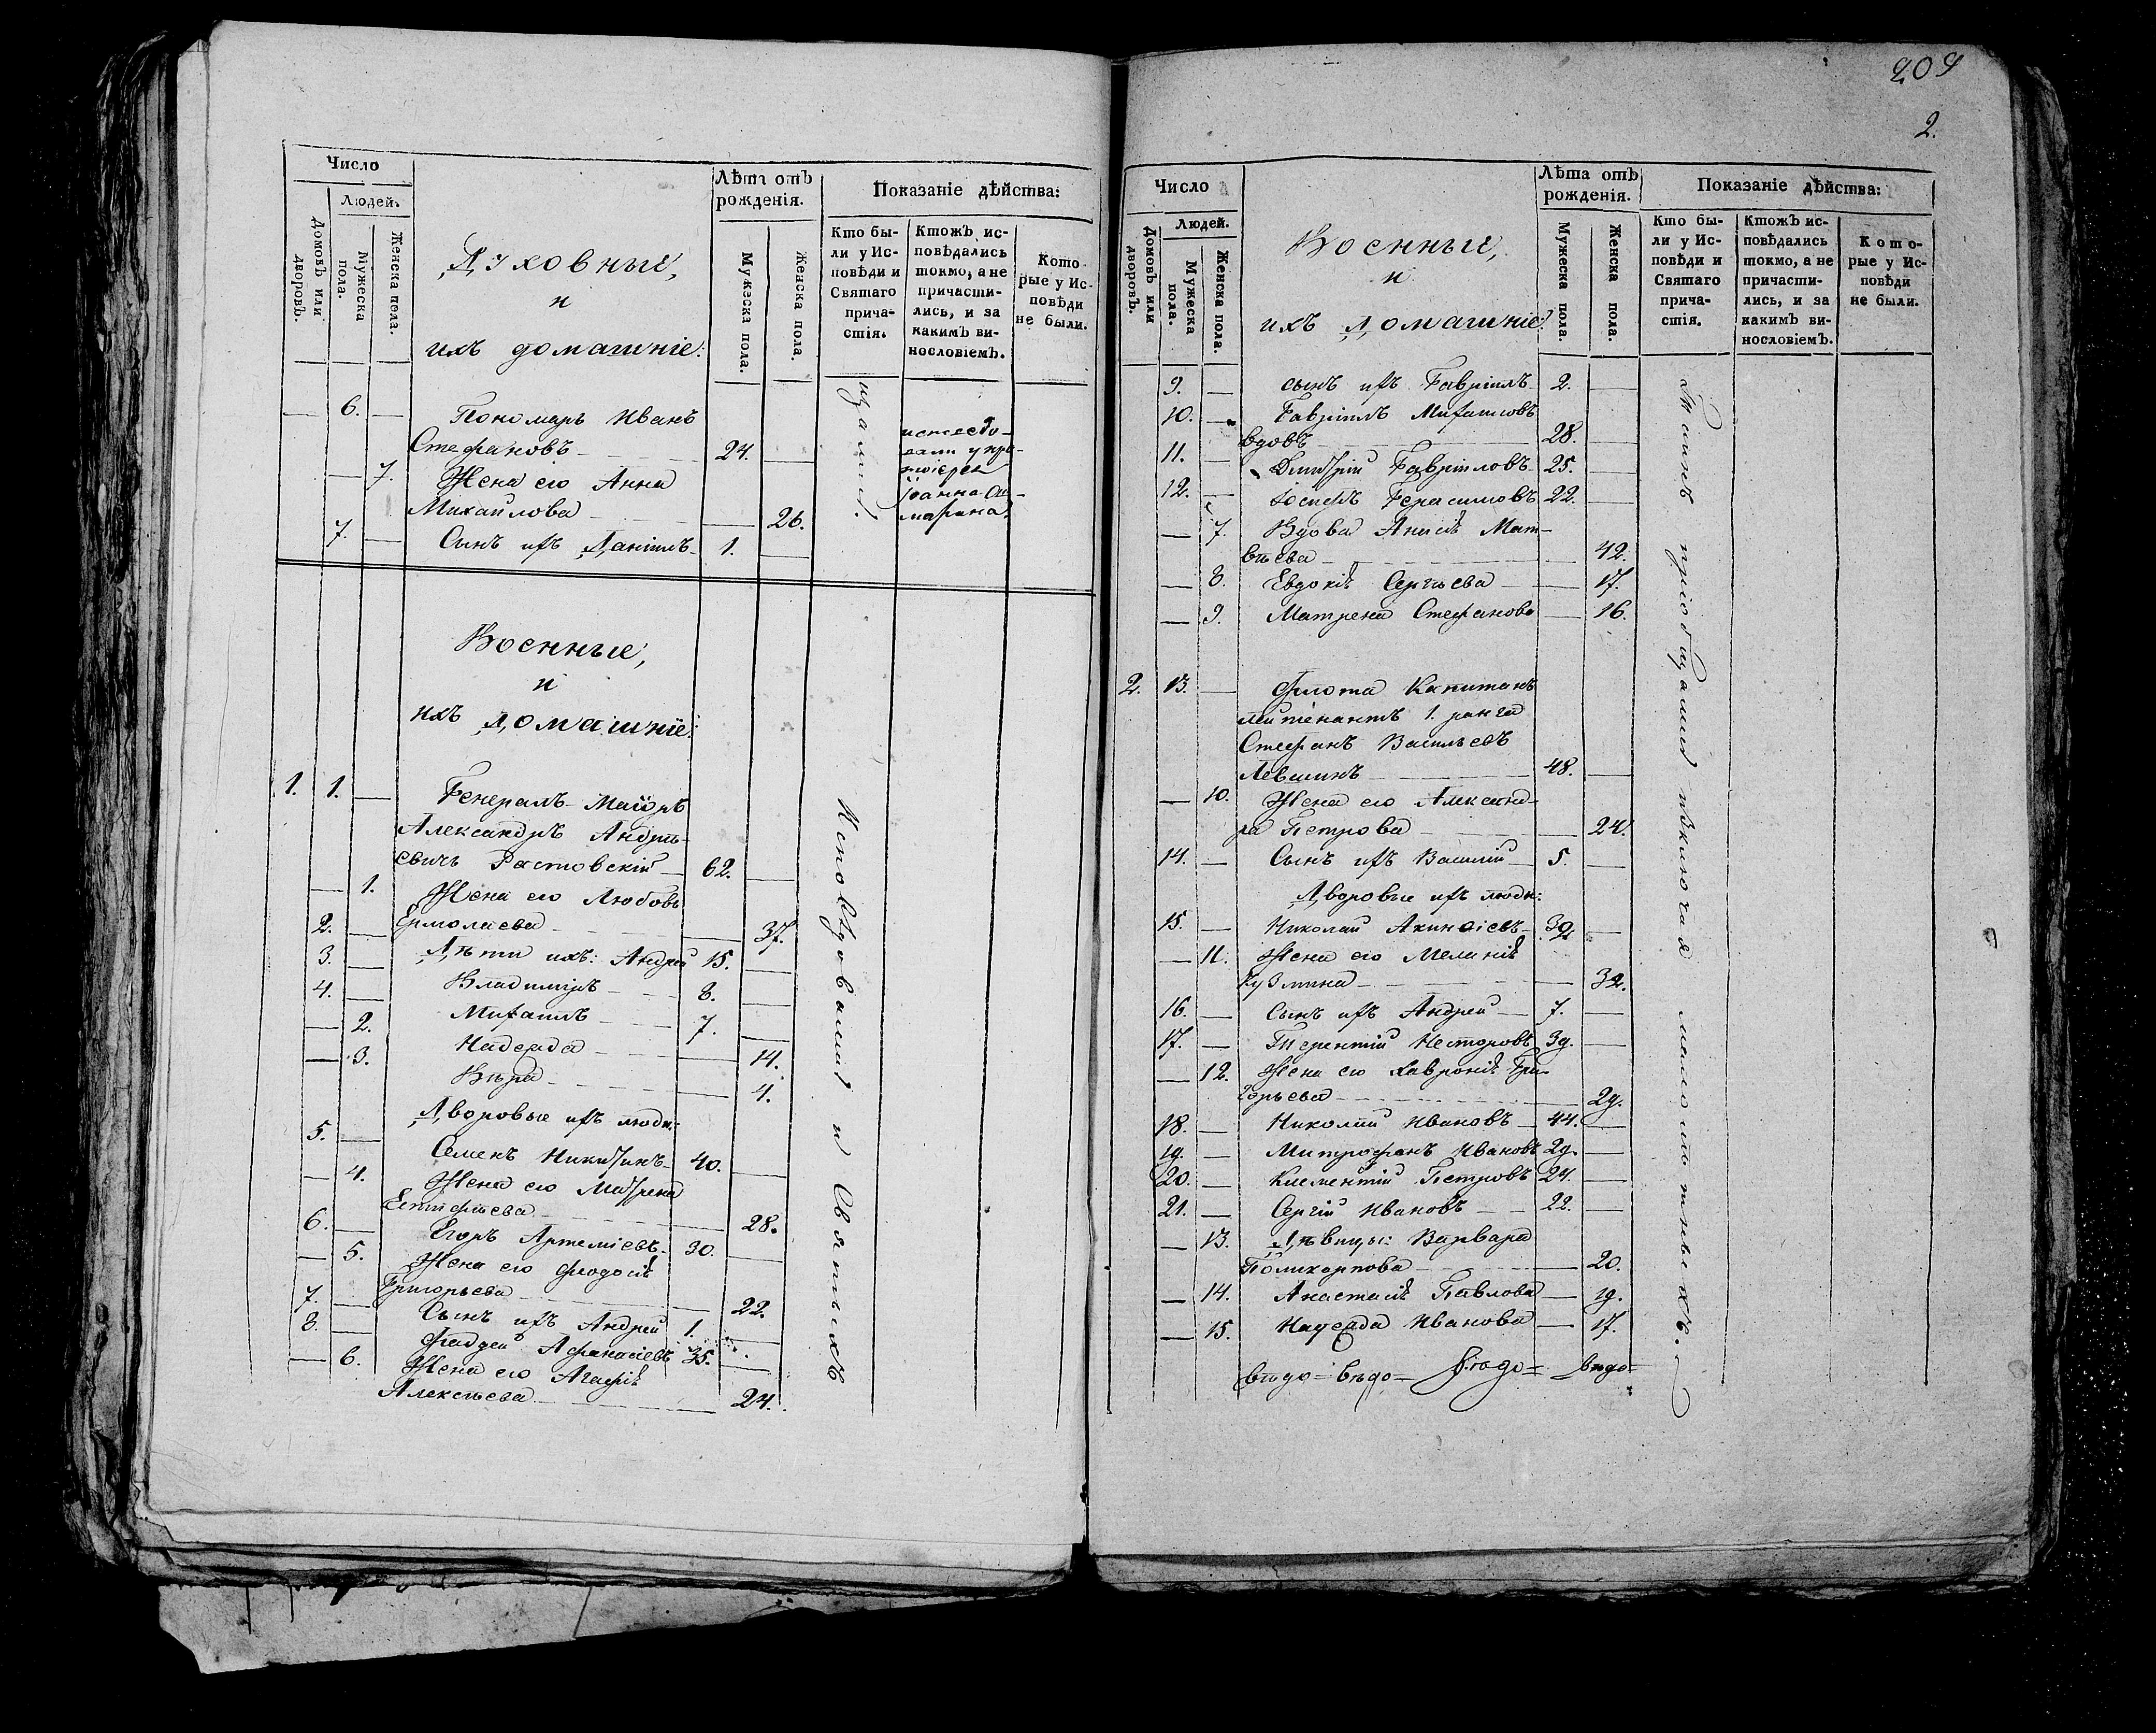 Число
Людей.
Домовъ или дворовъ.
Мужеска пола.
Женска пола.
Духовные,
и
ихъ домашніе:
Лѣта отъ рожденія.
Мужеска пола.
Женска пола.
Показаніе дѣйства:
Кто бы-
ли у Ис-
повѣди и
Святаго
прича-
стія.
Ктожъ ис-
повѣдались
токмо, а не
причасти-
лись, и за
какимъ ви-
нословіемъ.
Кото-
рые у Ис-
повѣди
не были.
— 6. — Пономарь Иванъ
Стефановъ — 24. —
— 7. Жена его Анна
Михайлова — — 26.
7. — Сынъ ихъ Даніилъ — 1. —
исповѣдо-
вали у про-
тоіерея
Іоанна
Военные,
и
ихъ домашніе:
1. 1. — Генералъ-Маіоръ
Александръ Андрѣ-
евичь Растовскій — 62. —
— 1. Жена его Любовь
Ермолаева — — 37.
2. — Дѣти ихъ: Андрей 15. —
3. — Владиміръ — 8. —
4. — Михаилъ — 7. —
— 2. Надежда — — 14.
— 3. Вѣра — — 4.
Дворовые ихъ люди:
5. — Семенъ Никитинъ — 40. —
— 4. Жена его Матрена
Евтифѣева — — 28.
6. — Егоръ Артеміевъ — 30. —
— 5. Жена его Ѳеодосія
Григорьева — — 22.
7. — Сынъ ихъ Андрей 1. —
8. — Фаддей Афанасіевъ 35. —
— 6. Жена его Агафія
Алексѣева — — 24.
Исповѣдовались и Святыхъ
209
2.
Число
Людей.
Домовъ или дворовъ.
Мужеска пола.
Женска пола.
Военные,
и
ихъ домашніе:
Лѣта отъ рожденія.
Мужеска пола.
Женска пола.
Показаніе дѣйства:
Кто бы-
ли у Ис-
повѣди и
Святаго
прича-
стія.
Ктожъ ис-
повѣдались
токмо, а не
причасти-
лись, и за
какимъ ви-
нословіемъ.
Кото-
рые у Ис-
повѣди
не были.
9. — сынъ ихъ Гавріилъ — 2. —
10. — Гавріилъ Михаиловъ
вдовъ — 28. —
11. — Димитрій Гавріиловъ — 25. —
12. — Іосифъ Герасимовъ 22. —
— 7. Вдова Анисія Мат-
вѣева — — 42.
— 8. Евдокія Сергѣева — — 17.
— 9. Матрена Стефанова — 16.
2. 13. — Флота Капитанъ
лейтенантъ 1. ранга
Стефанъ Васильевъ
Левшинъ — 48. —
— 10. Жена его Александ-
ра Петрова — — 24.
14. — Сынъ ихъ Василій — 5. —
Дворовые ихъ люди:
15. — Николай Акинѳіевъ — 39. —
— 11. Жена его Меланія
Кузмина — — 32.
16. — Сынъ ихъ Андрей — 7. —
17. — Терентій Несторовъ 39. —
— 12. Жена его Хавронія Гри-
горьева — — 29.
18. — Николай Ивановъ — 44. —
19. — Митрофанъ Ивановъ 29. —
20. — Климентій Петровъ 24. —
21. — Сергій Ивановъ — 22. —
— 13. Дѣвицы: Варвара
Поликарпова — — 20.
— 14. Анастасія Павлова — 19.
— 15. Надежда Иванова — 17.
Таинъ пріобщались изключая малолѣтныхъ.